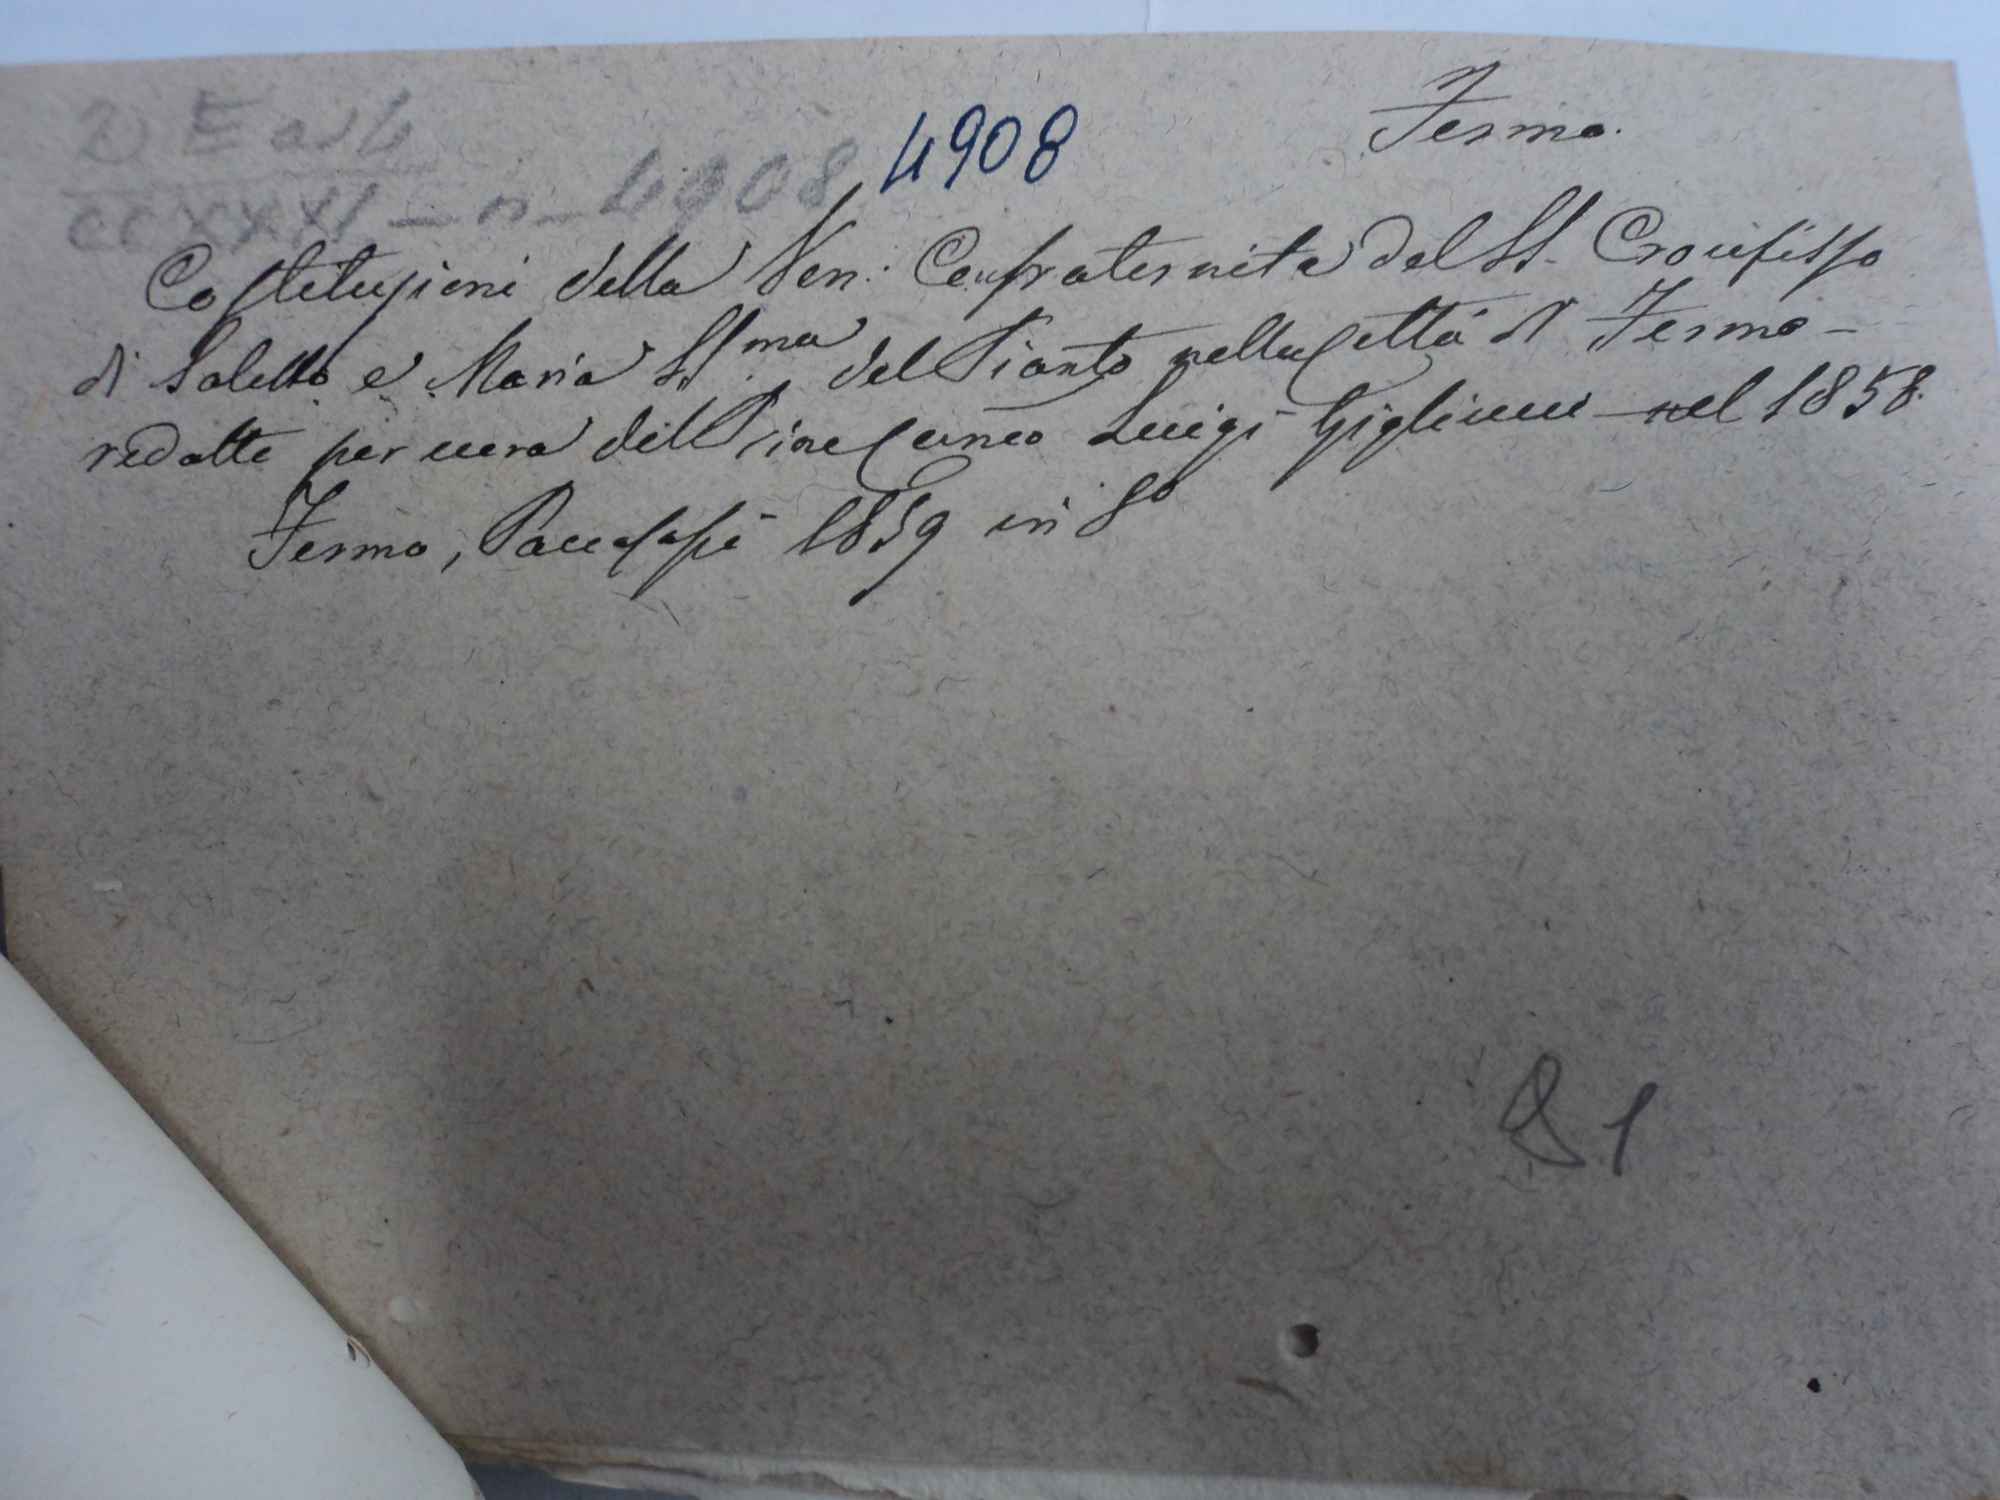 Fermo.
4908
CCXXXI - n - 4908
Costituzioni della Ven: Confraternita del SS. Crocifisso
di Saletto e Maria SSma del Pianto nella Città di Fermo -
redatte per cura del Luigi Gigliucci nel 1858.
Fermo, Paccasassi 1859 in 8º
81